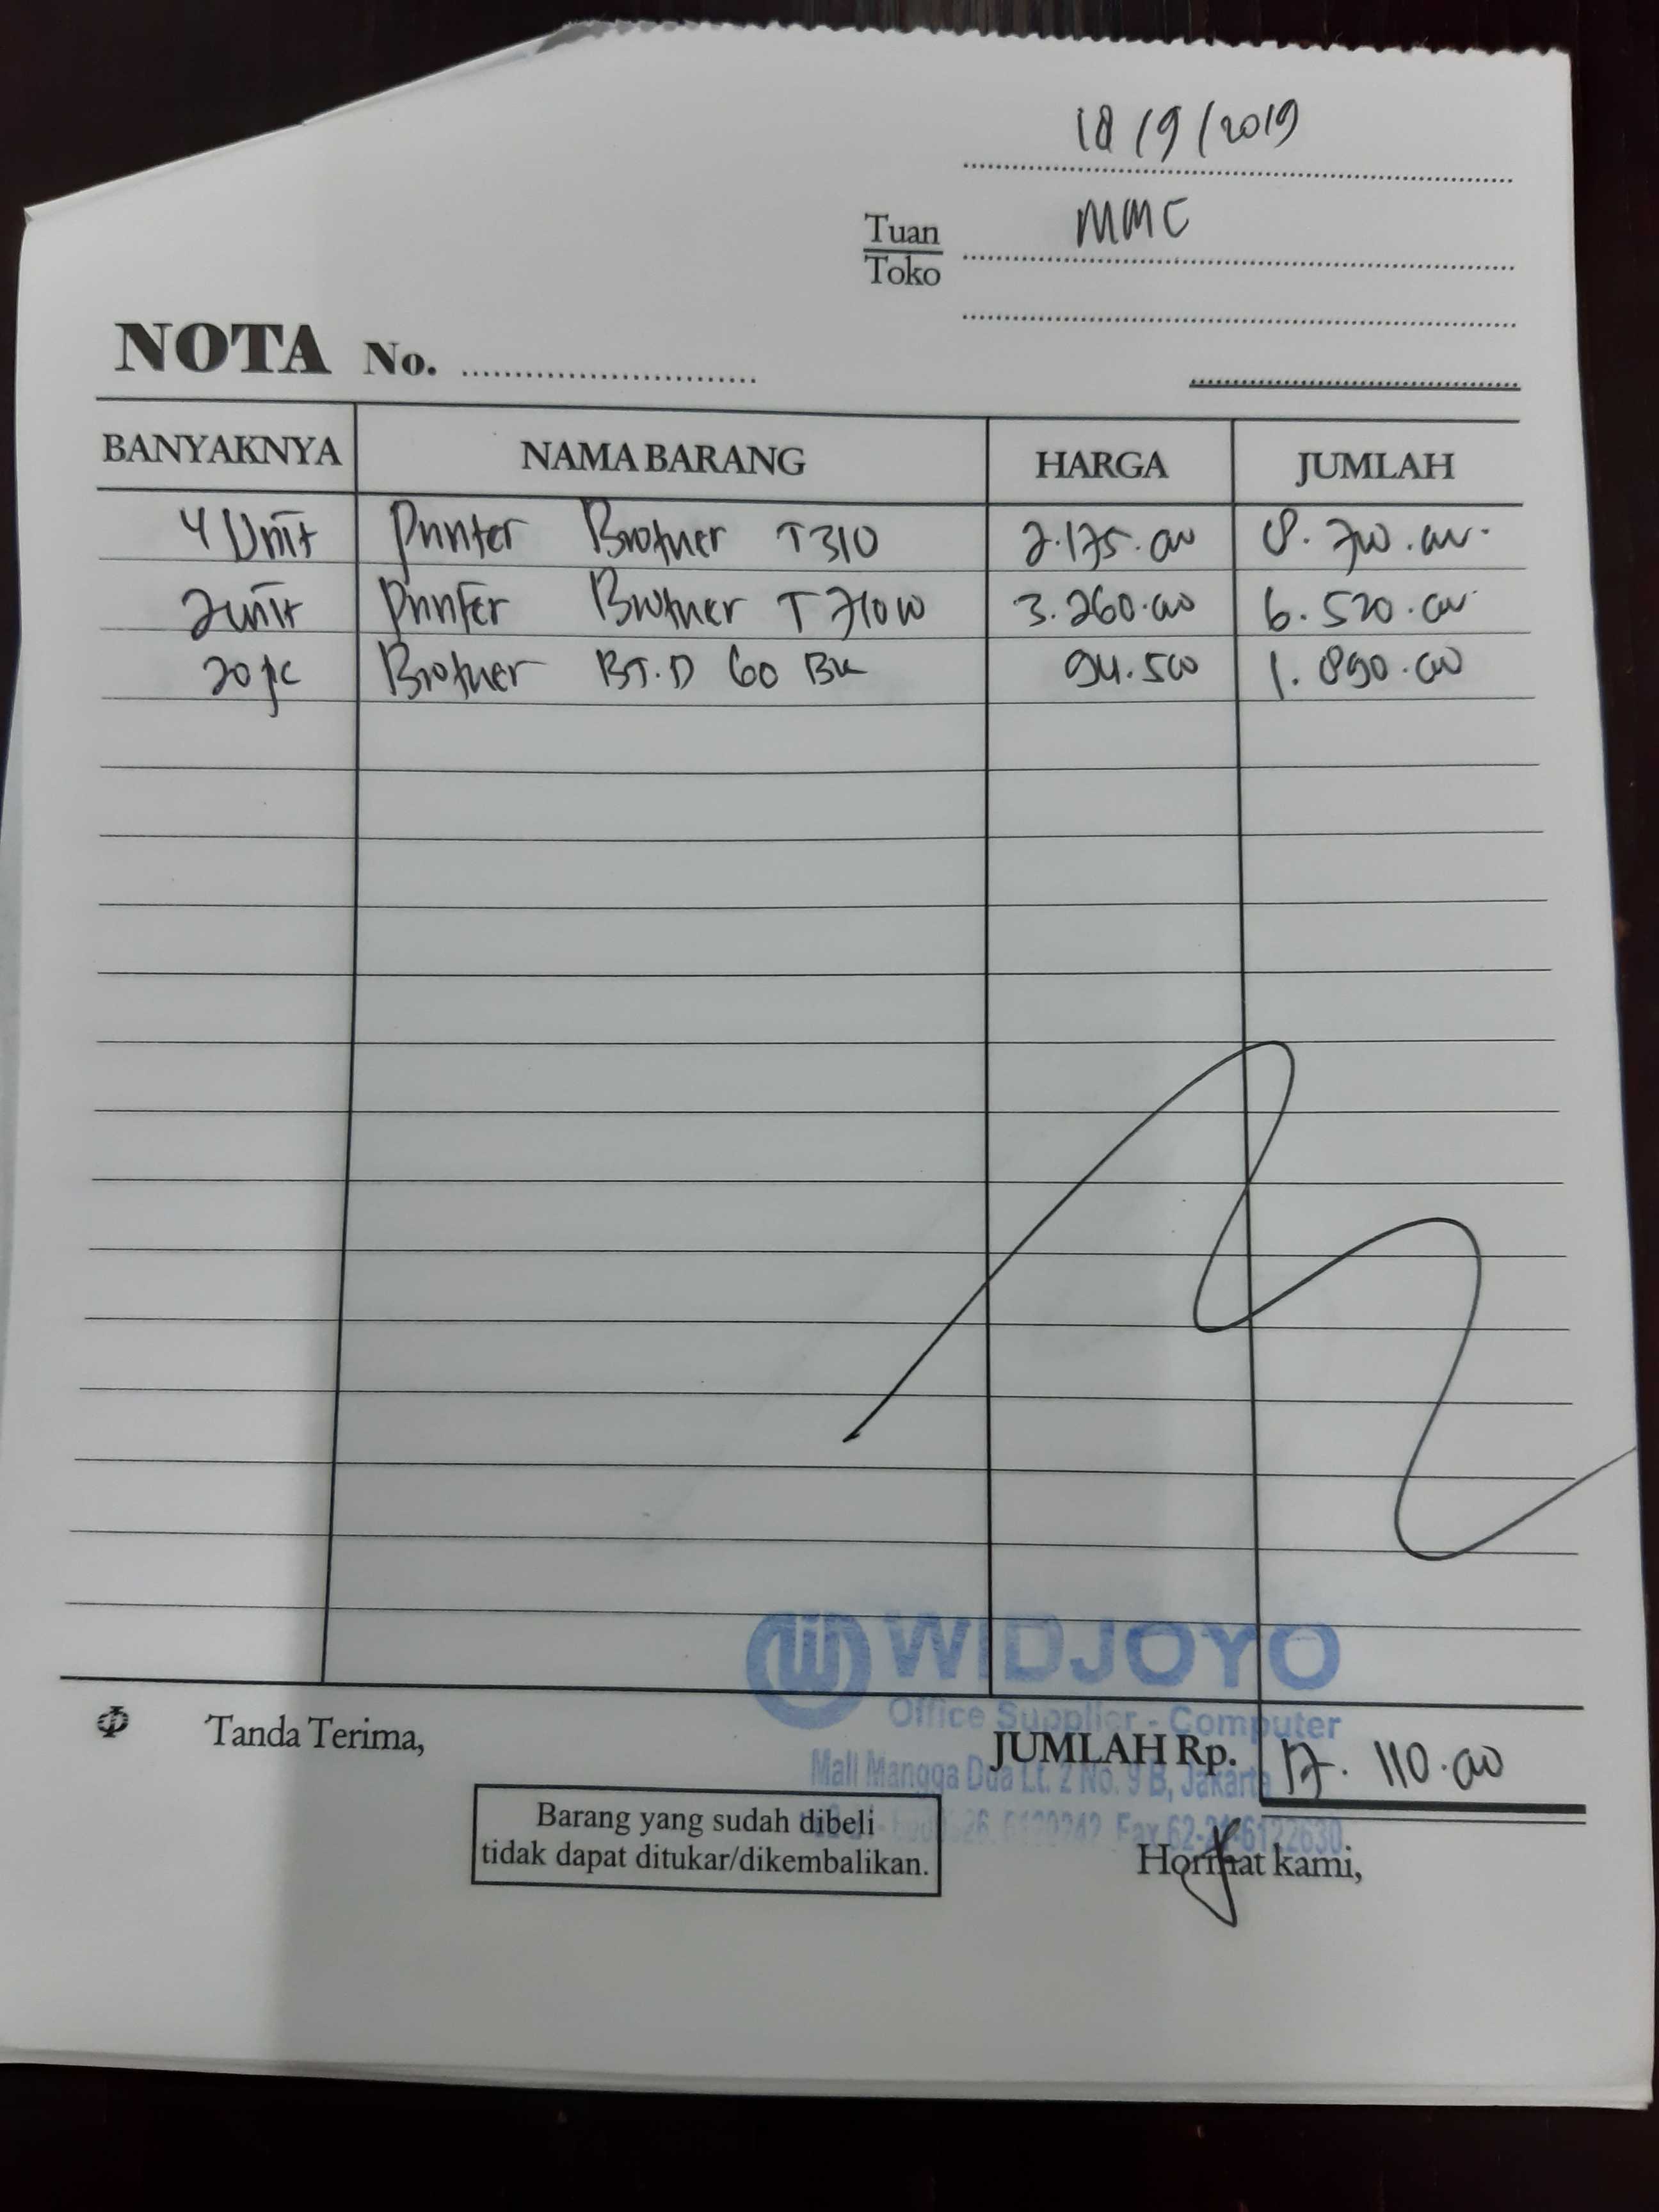 18/9/2019
Tuan
Toko
MMC
NOTA No.
BANYAKNYA NAMA BARANG HARGA JUMLAH
4 Unit Printer Brother T310 2.175.000 8.700.000
2 unit Printer Brother T710W 3.260.000 6.520.000
20 pc Brother BT.D 60 BK 94.500 1.890.000
WIDJOYO
Office Supplier - Computer
Tanda Terima,
JUMLAH Rp. 17.110.000
Mall Mangga Dua Lt. 2 No. 9 B, Jakarta
Barang yang sudah dibeli
tidak dapat ditukar/dikembalikan.
Fax 62-21-6122630
Hormat kami,